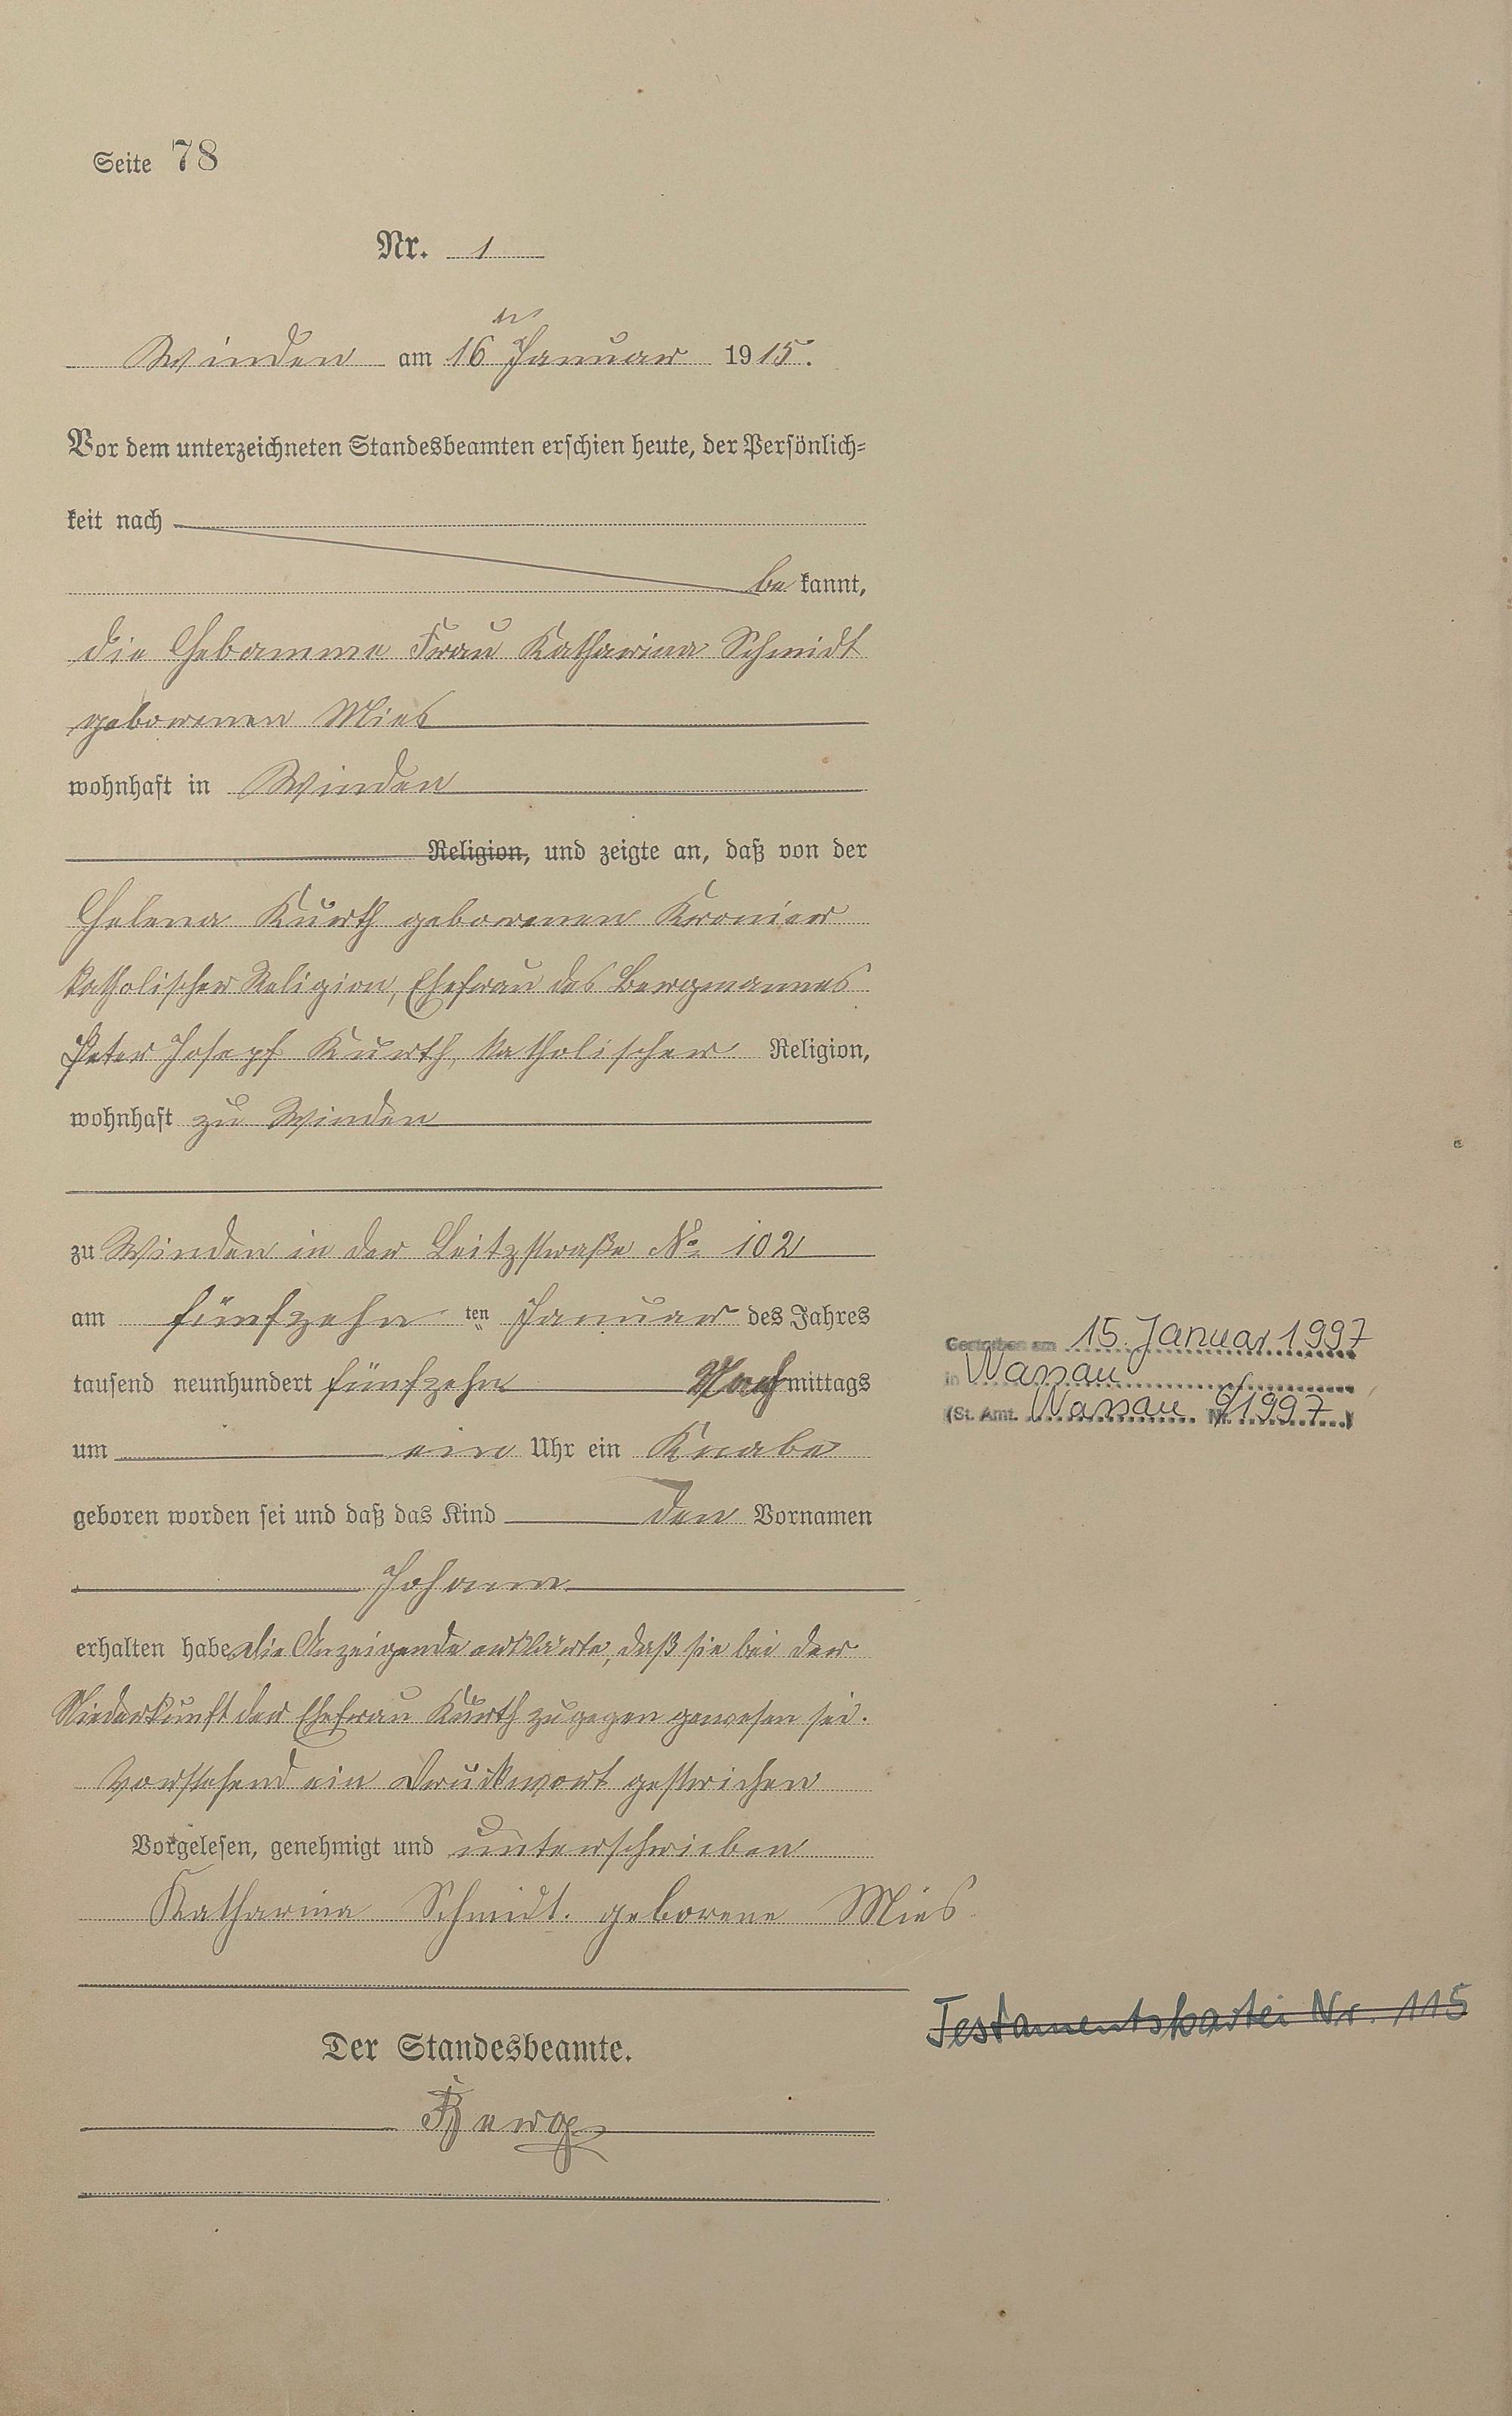 Seite 78
Nr. 1
Winden am 16ten Januar 1915.
Vor dem unterzeichneten Standesbeamten erschien heute, der Persönlich=
keit nach
be kannt,
die Hebamme Frau Katharina Schmidt
geborenen Mies
wohnhaft in Winden
Religion, und zeigte an, daß von der
Helena Kurth geborenen Kronier
katholischer Religion, Ehefrau des Bergmannes
Peter Josepf Kurth, katholischer Religion,
wohnhaft zu Winden
zu Winden in der Leitzstraße No 102
am fünfzehn ten Januar des Jahres
tausend neunhundert fünfzehn Nachmittags
um ein Uhr ein Knabe
geboren worden sei und daß das Kind den Vornamen
Johann
erhalten habe. Die Anzeigende erklärte, daß sie bei der
Niederkunft der Ehefrau Kurth zugegen gewesen sei.
Vorstehend ein Druckwort gestrichen
Vorgelesen, genehmigt und unterschrieben
Katharina Schmidt. geborene Mies
Der Standesbeamte.
Berg
Gestorben am 15. Januar 1997
in Nassau
(St. Amt. Nassau Nr. 9/1997)
Testamentskartei Nr. 115